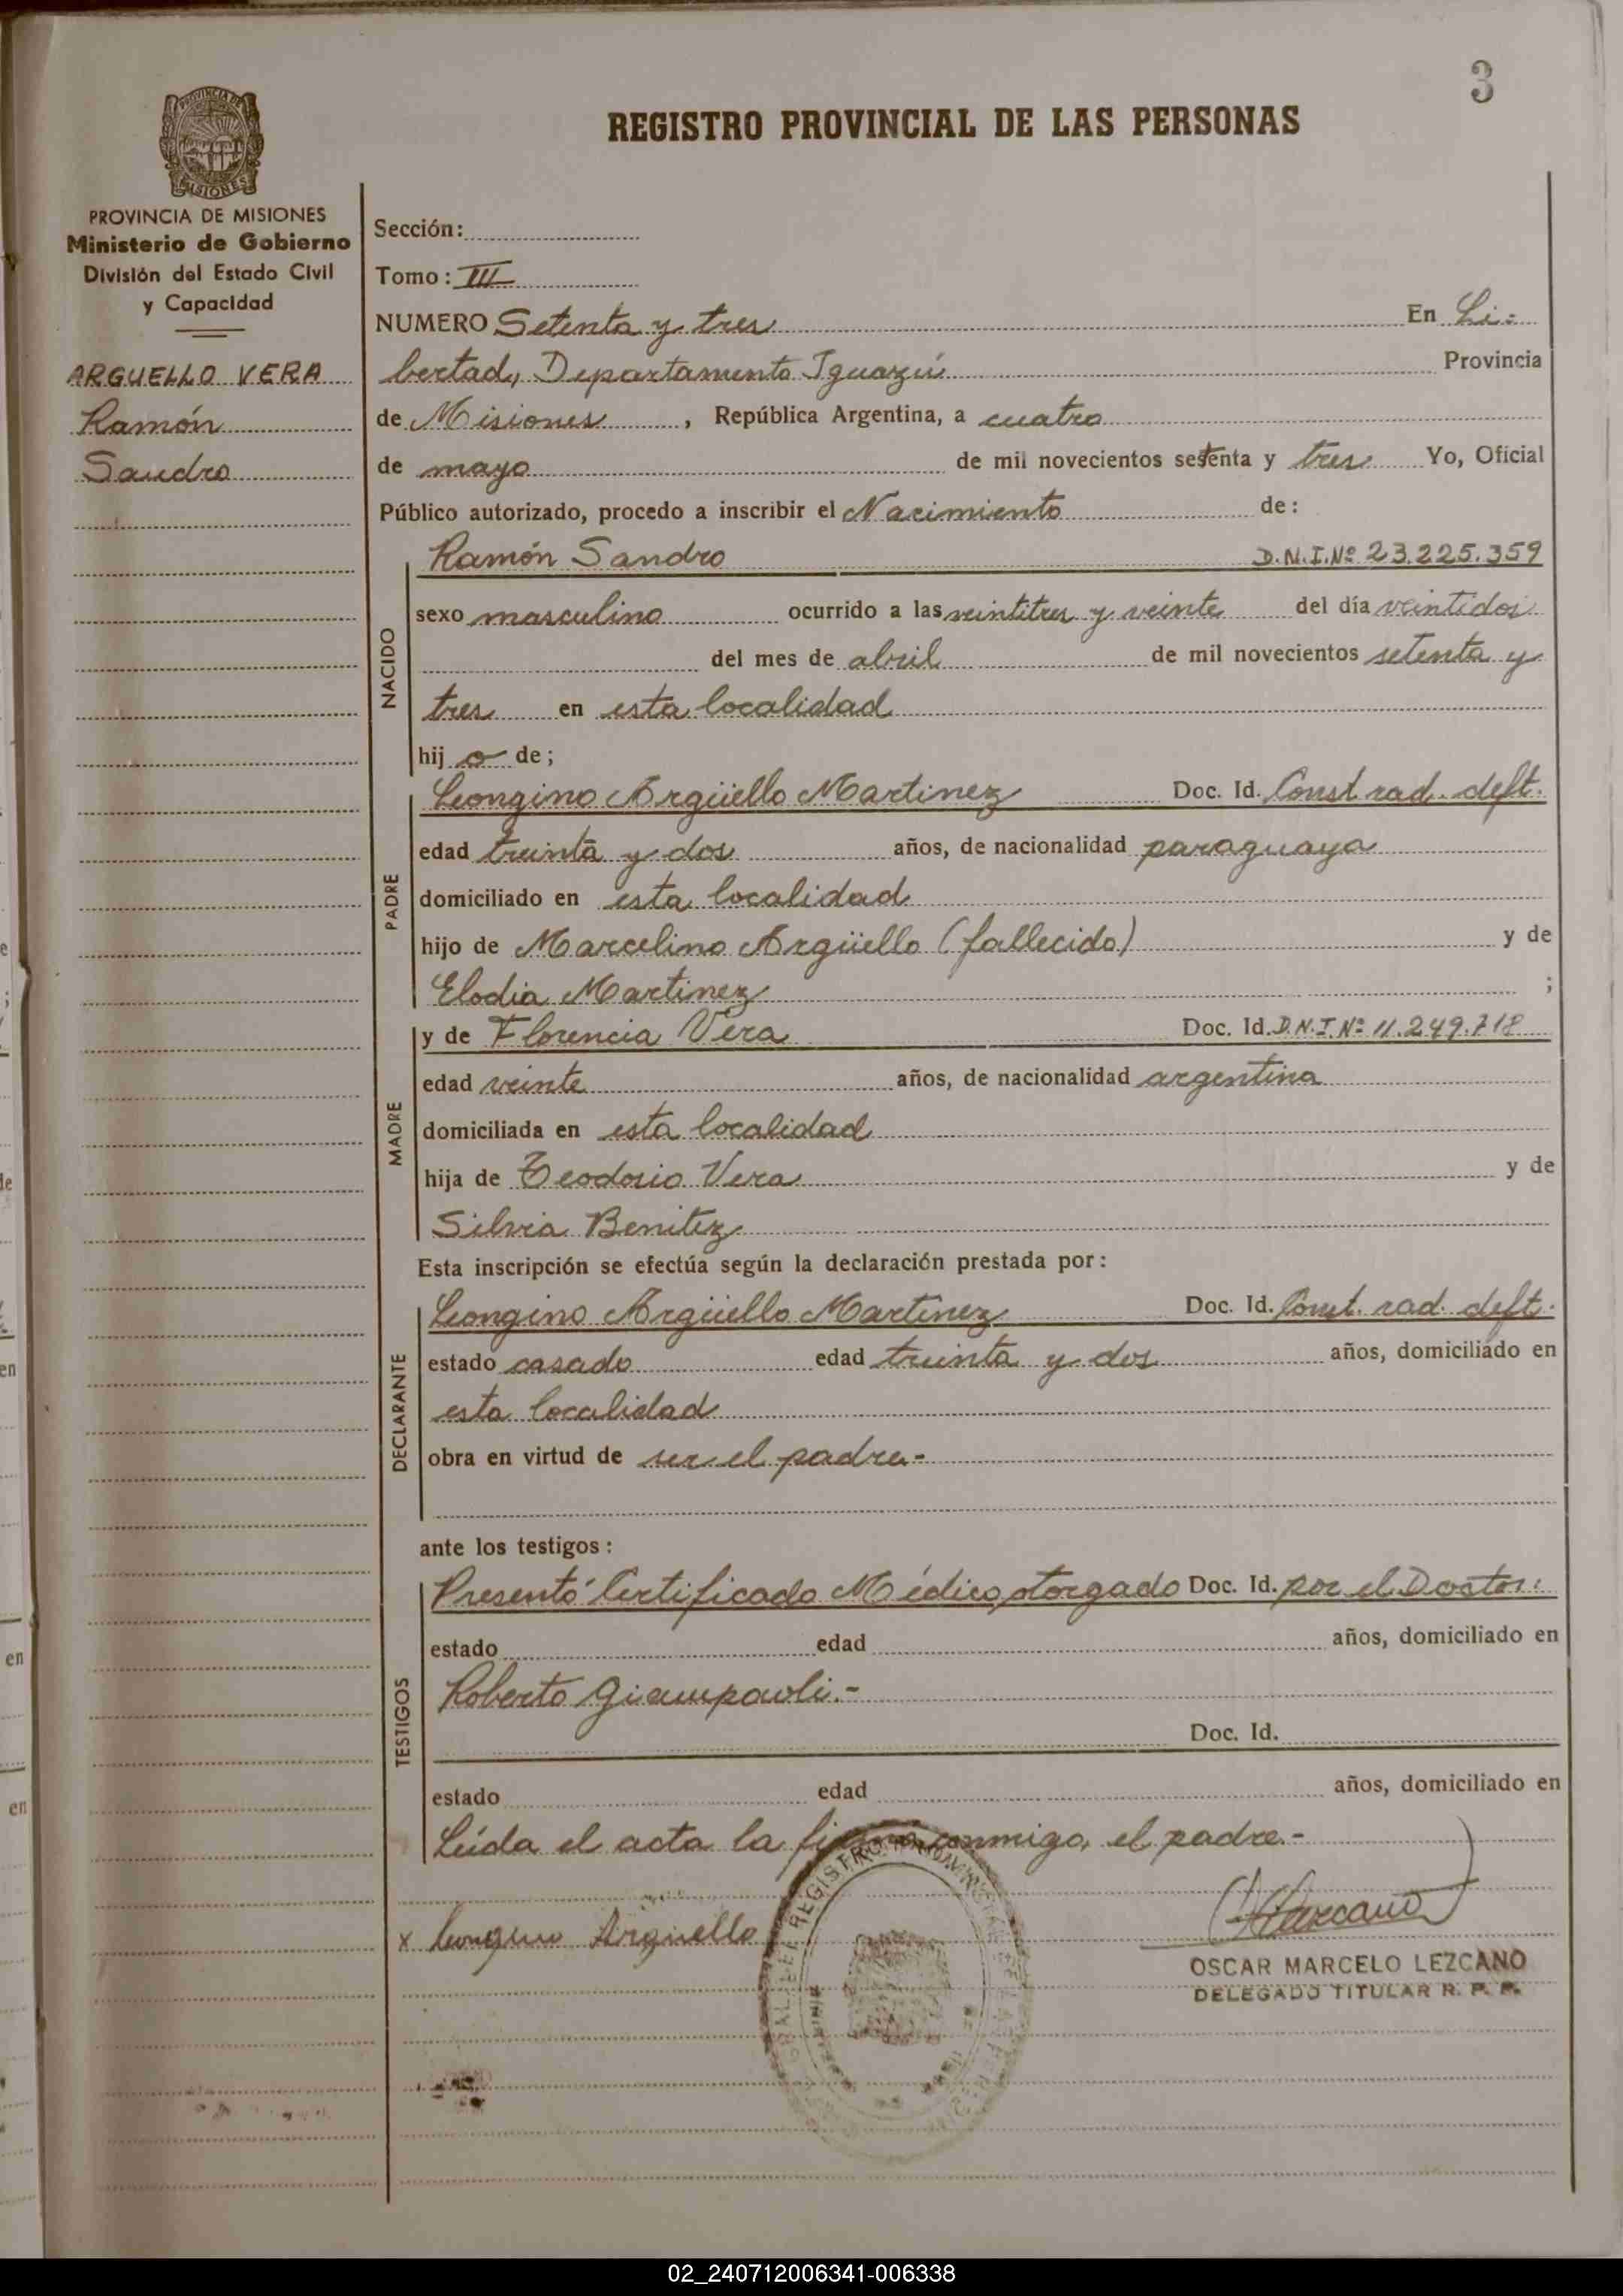 3
REGISTRO PROVINCIAL DE LAS PERSONAS
PROVINCIA DE MISIONES
Ministerio de Gobierno
División del Estado Civil
y Capacidad
ARGUELLO VERA
Ramón
Sandro
Sección:
Tomo: III
NUMERO Setenta y tres En Li-
bertad, Departamento Iguazú Provincia
de Misiones, República Argentina, a cuatro
de mayo de mil novecientos setenta y tres Yo, Oficial
Público autorizado, procedo a inscribir el Nacimiento de:
NACIDO
Ramón Sandro D.N.I.Nº 23.225.359
sexo masculino ocurrido a las veintitres y veinte del día veintidos
del mes de abril de mil novecientos setenta y
tres en esta localidad
hijo de;
PADRE
Longino Argüello Martinez Doc. Id. Const. rad. deft.
edad treinta y dos años, de nacionalidad paraguaya
domiciliado en esta localidad
hijo de Marcelino Argüello (fallecido) y de
Elodia Martinez ;
MADRE
y de Florencia Vera Doc. Id. D.N.I.Nº 11.249.718
edad veinte años, de nacionalidad argentina
domiciliada en esta localidad
hija de Teodosio Vera y de
Silvia Benitez
Esta inscripción se efectúa según la declaración prestada por:
DECLARANTE
Longino Argüello Martinez Doc. Id. Const. rad. deft.
estado casado edad treinta y dos años, domiciliado en
esta localidad
obra en virtud de ser el padre.-
ante los testigos:
TESTIGOS
Presentó Certificado Médico otorgado Doc. Id. por el Doctor:
estado edad años, domiciliado en
Roberto Giampaoli.-
Doc. Id.
estado edad años, domiciliado en
Leída el acta la firma conmigo, el padre.-
x Longino Arguello
OSCAR MARCELO LEZCANO
DELEGADO TITULAR R. P. P.
02_240712006341-006338